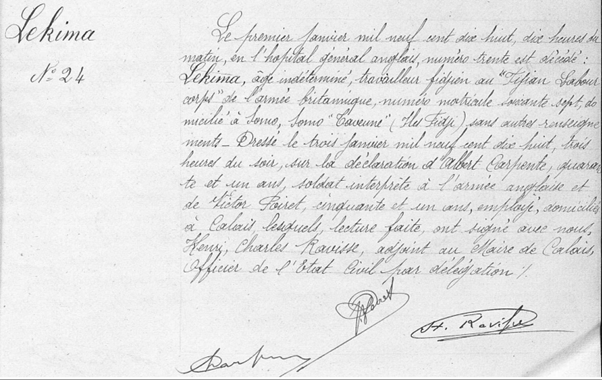 Lekima
N° 24
Le premier janvier mil neuf cent dix huit, dix heures du
matin, en l'hopital général anglais, numéro trente est décédé :
Lekima, âgé indéterminé, travailleur fidjien au "Fijian Labour
corps" de l'armée britannique, numéro matricule soixante sept, do
micilié à Somo, Somo "Taveune" (Iles Fidji) sans autres renseigne
ments - Dressé le trois janvier mil neuf cent dix huit, trois
heures du soir, sur la déclaration d'Albert Carpente, quaran
te et un ans, soldat interprète à l'armée anglaise et
de Victor Poiret, cinquante et un ans, employé, domiciliés
à Calais, lesquels, lecture faite, ont signé avec nous,
Henri, Charles Ravisse, adjoint au Maire de Calais,
Officier de l'Etat Civil par délégation /.
H. Ravisse